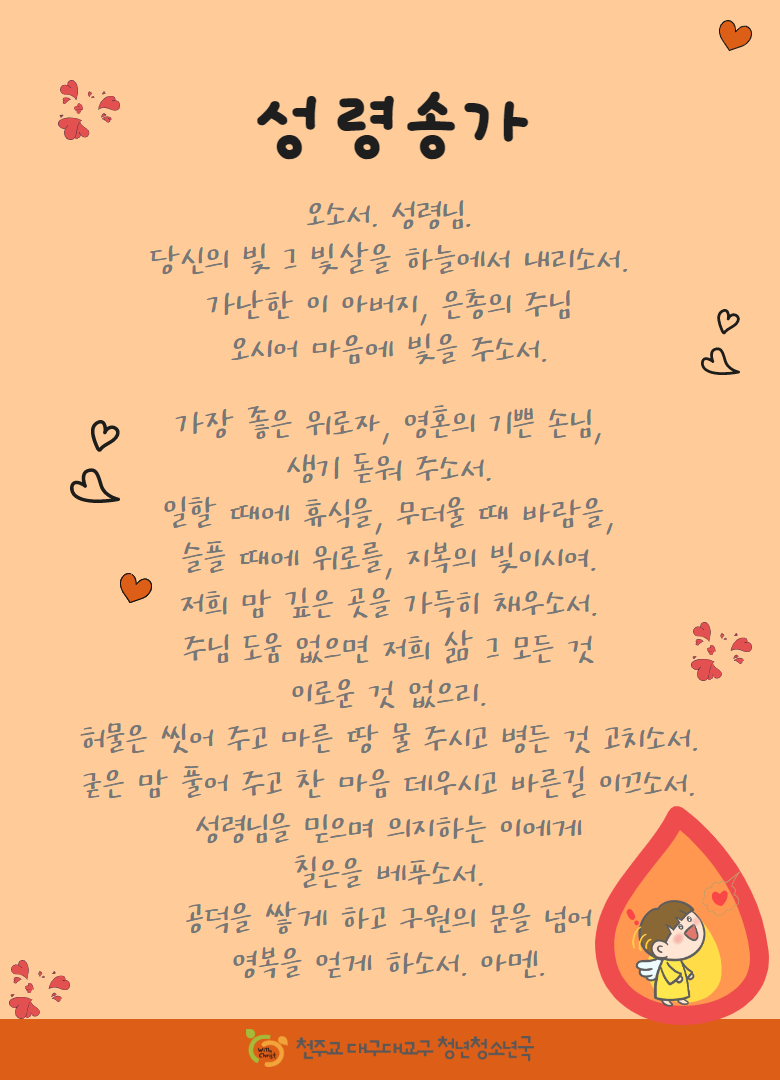 성령송가
오소서. 성령님.
당신의 빛 그 빛살을 하늘에서 내리소서.
가난한 이 아버지, 은총의 주님
오시어 마음에 빛을 주소서.
가장 좋은 위로자, 영혼의 기쁜 손님,
생기 돋워 주소서.
일할 때에 휴식을, 무더울 때 바람을,
슬플 때에 위로를, 지복의 빛이시여.
저희 맘 깊은 곳을 가득히 채우소서.
주님 도움 없으면 저희 삶 그 모든 것
이로운 것 없으리.
허물은 씻어 주고 마른 땅 물 주시고 병든 것 고치소서.
굳은 맘 풀어 주고 찬 마음 데우시고 바른길 이끄소서.
성령님을 믿으며 의지하는 이에게
칠은을 베푸소서.
공덕을 쌓게 하고 구원의 문을 넘어
영복을 얻게 하소서. 아멘.
with Christ
천주교 대구대교구 청년청소년국